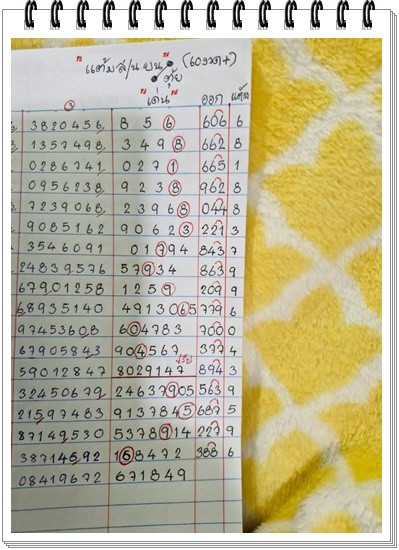 "แต้มสี/น บน" (60งวด+)
ตุ้ย
"เด่น" ออก แต้ม
3820456 8 5 6 606 6
1357498 3 4 9 8 662 8
0286741 0 2 7 1 665 1
0956238 9 2 3 8 962 8
7239068 2 3 9 6 8 044 8
9085162 9 0 6 2 3 221 3
3546091 0 1 7 9 4 843 7
24839576 5 7 9 3 4 863 9
67901258 1 2 5 9 209 9
68935140 4913065 779 6
97453608 604783 700 0
67905843 904567 377 4
59012847 8029147 894 3
32450679 24637905 563 9
21597483 9137845 687 5
87149530 5378914 227 9
38714592 158472 388 6
08419672 671849